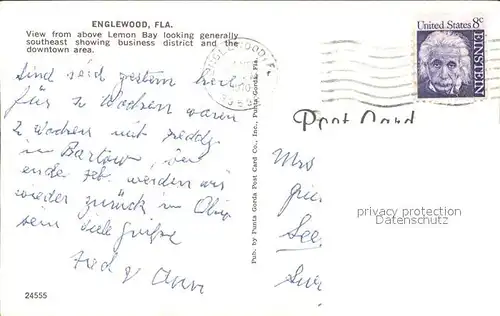 ENGLEWOOD, FLA.
View from above Lemon Bay looking generally
southeast showing business district and the
downtown area.
Sind seid gestern hier
für 2 Wochen waren
2 Wochen mit
in Bartow,
ende Feb. werden wir
wieder zurück in Ohio
sein viele Grüße
Fred & Ann
24555
Pub. by Punta Gorda Post Card Co., Inc., Punta Gorda, Fla.
ENGLEWOOD
United States 8c
EINSTEIN
Post Card
Mrs
See
privacy protection
Datenschutz